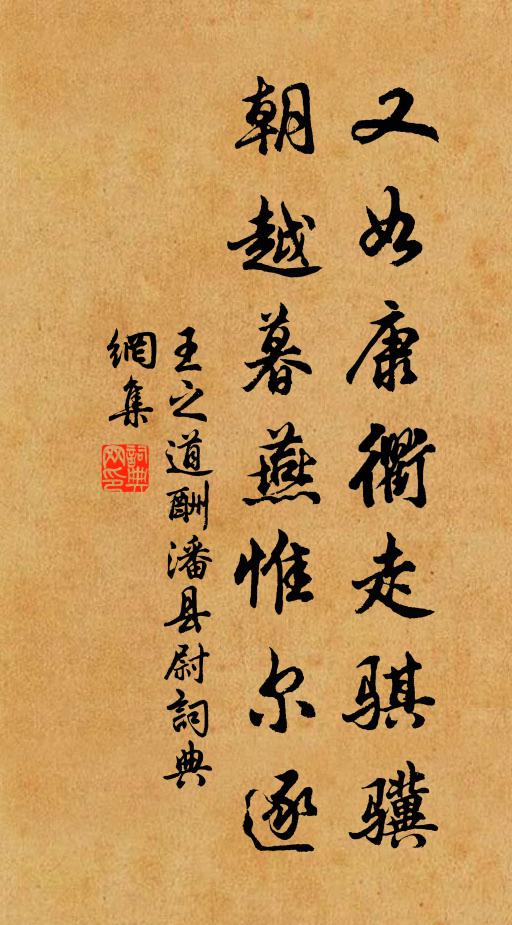 又如康衢走骐骥
朝越暮燕惟尔逐
王之道酬潘县尉詞典
網集
詞典网印